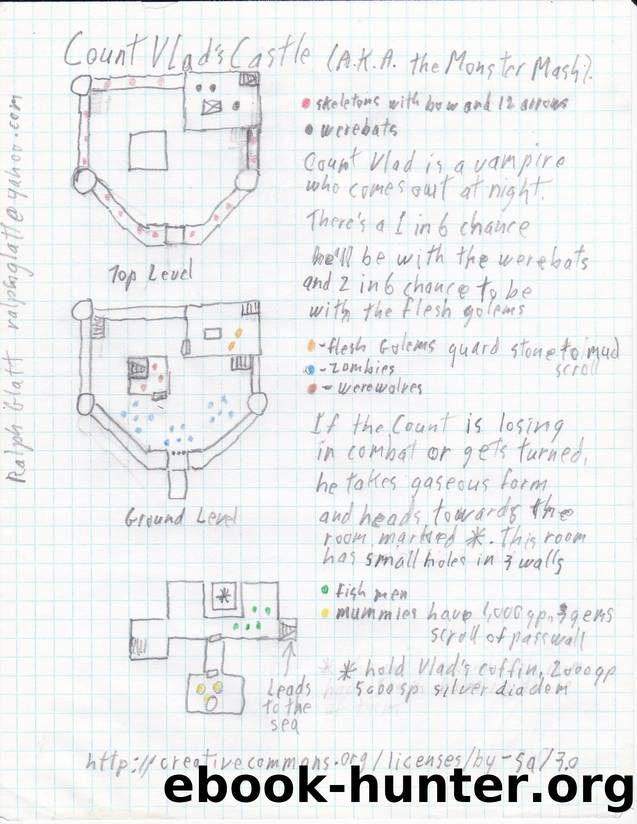 Count Vlad's Castle (A.K.A. the Monster Mash).
skeletons with bow and 12 arrows
werebats
Count Vlad is a vampire
who comes out at night.
There's a 1 in 6 chance
he'll be with the werebats
and 2 in 6 chance to be
with the flesh golems
Top Level
-flesh Golems guard stone to mud
scroll
-zombies
-werewolves
If the Count is losing
in combat or gets turned,
he takes gaseous form
and heads towards the
room marked *. This room
has small holes in 3 walls
Ground Level
fish men
mummies have 1,000 gp, 3 gems
scroll of passwall
*
* hold Vlad's coffin, 2000gp
5000sp silver diadem
Leads
to the
sea
Ralph Glatt ralphglatt@yahoo.com
http://creativecommons.org/licenses/by-sa/3.0
ebook-hunter.org